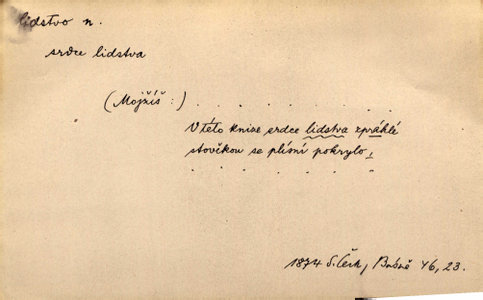 lidstvo n.
srdce lidstva
(Mojžíš:) . . . . . . . . . .
V této knize srdce lidstva zpráhlé
stověkou se plísní pokrylo,
. . . . . . . .
1874 S. Čech, Básně 46, 23.